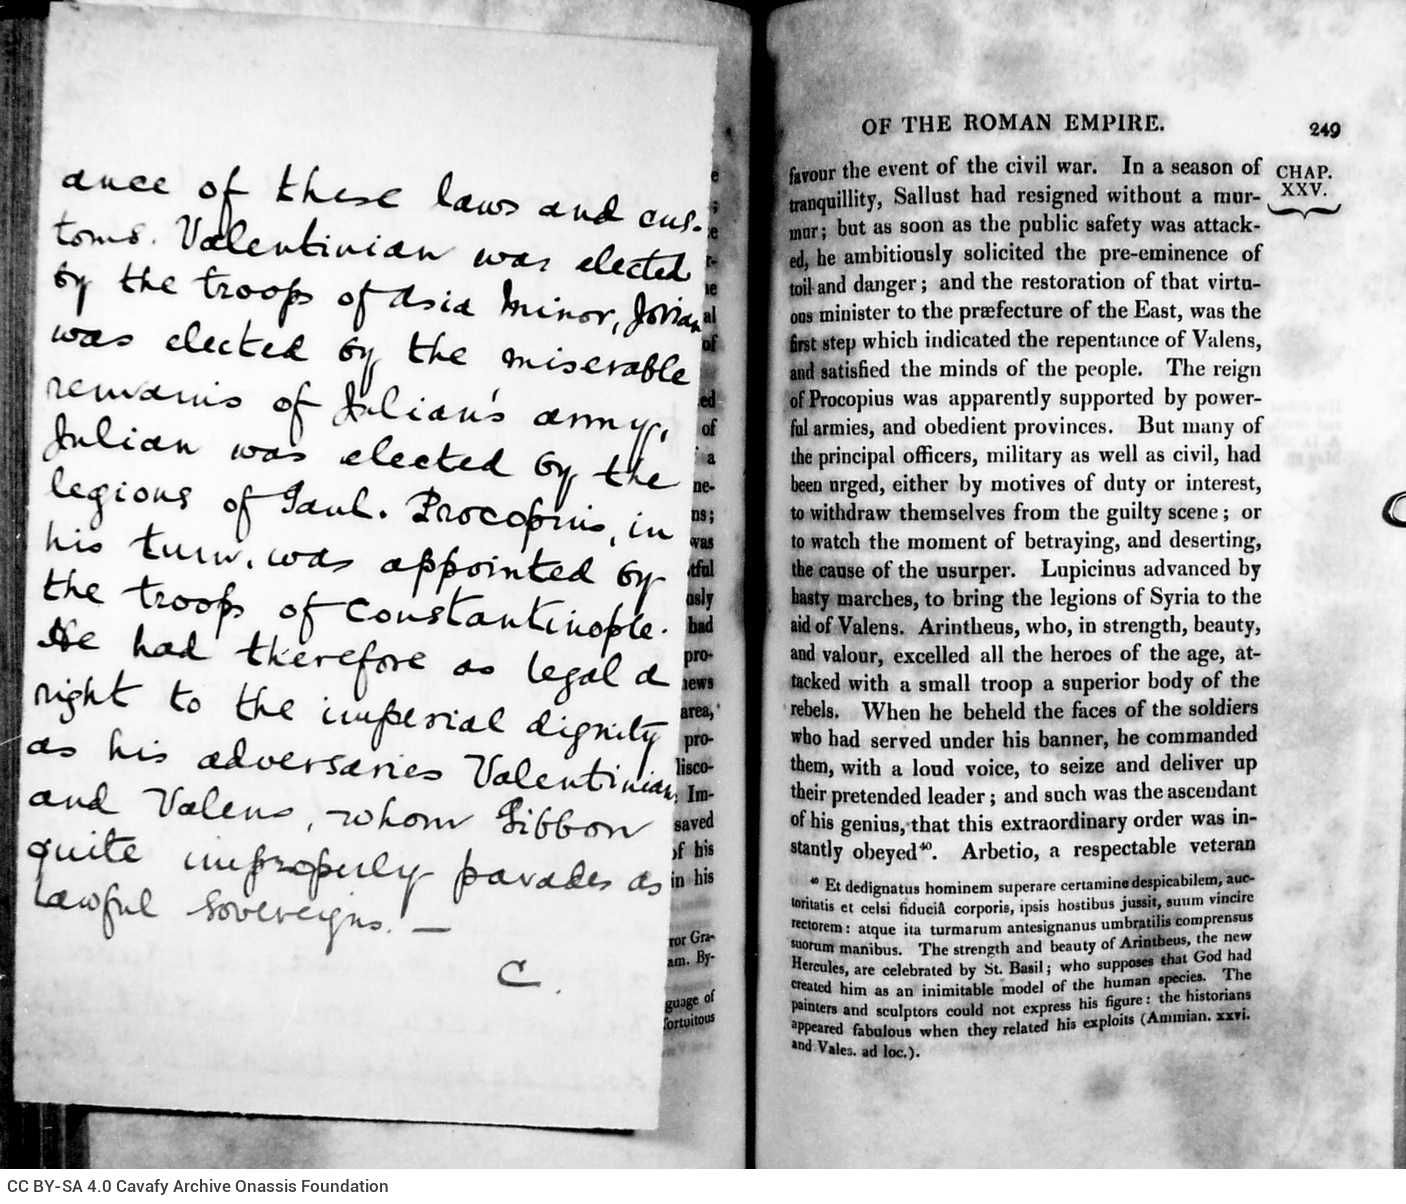 ance of these laws and cus-
toms. Valentinian was elected
by the troops of Asia Minor, Jovian
was elected by the miserable
remains of Julian's army,
Julian was elected by the
legions of Gaul. Procopius, in
his turn, was appointed by
the troops of Constantinople.
He had therefore as legal a
right to the imperial dignity
as his adversaries Valentinian
and Valens, whom Gibbon
quite improperly parades as
lawful sovereigns. —
C.
ed
of
a
ne-
ns;
was
tful
usly
had
pro-
news
area,
pro-
disco-
Im-
saved
of his
in his
ror Gra-
am. By-
guage of
fortuitous
OF THE ROMAN EMPIRE. 249
CHAP.
XXV.
favour the event of the civil war. In a season of
tranquillity, Sallust had resigned without a mur-
mur; but as soon as the public safety was attack-
ed, he ambitiously solicited the pre-eminence of
toil and danger; and the restoration of that virtu-
ous minister to the præfecture of the East, was the
first step which indicated the repentance of Valens,
and satisfied the minds of the people. The reign
of Procopius was apparently supported by power-
ful armies, and obedient provinces. But many of
the principal officers, military as well as civil, had
been urged, either by motives of duty or interest,
to withdraw themselves from the guilty scene; or
to watch the moment of betraying, and deserting,
the cause of the usurper. Lupicinus advanced by
hasty marches, to bring the legions of Syria to the
aid of Valens. Arintheus, who, in strength, beauty,
and valour, excelled all the heroes of the age, at-
tacked with a small troop a superior body of the
rebels. When he beheld the faces of the soldiers
who had served under his banner, he commanded
them, with a loud voice, to seize and deliver up
their pretended leader; and such was the ascendant
of his genius, that this extraordinary order was in-
stantly obeyed⁴⁰. Arbetio, a respectable veteran
⁴⁰ Et dedignatus hominem superare certamine despicabilem, auc-
toritatis et celsi fiduciâ corporis, ipsis hostibus jussit, suum vincire
rectorem: atque ita turmarum antesignanus umbratilis comprensus
suorum manibus. The strength and beauty of Arintheus, the new
Hercules, are celebrated by St. Basil; who supposes that God had
created him as an inimitable model of the human species. The
painters and sculptors could not express his figure: the historians
appeared fabulous when they related his exploits (Ammian. xxvi.
and Vales. ad loc.).
CC BY-SA 4.0 Cavafy Archive Onassis Foundation